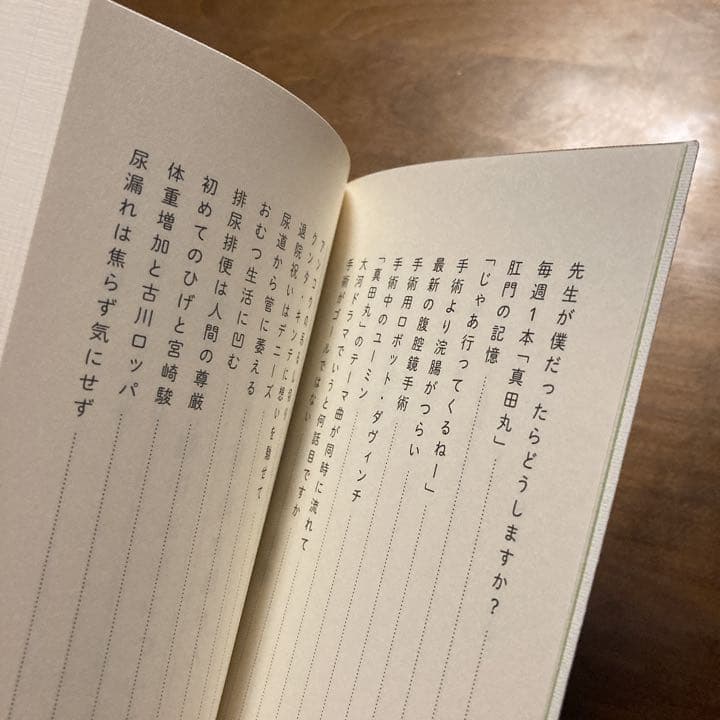 先生が僕だったらどうしますか？
毎週1本「真田丸」
肛門の記憶
「じゃあ行ってくるねー」
手術より浣腸がつらい
最新の腹腔鏡手術
手術用ロボット・ダヴィンチ
手術中のユーミン
「真田丸」のテーマ曲が同時に流れて
大河ドラマでいうと何話目ですか
手術がゴールではない
クンタ・キンテに想いを馳せて
退院祝いはデニーズ
尿道から管に萎える
おむつ生活に凹む
排尿排便は人間の尊厳
初めてのひげと宮崎駿
体重増加と古川ロッパ
尿漏れは焦らず気にせず